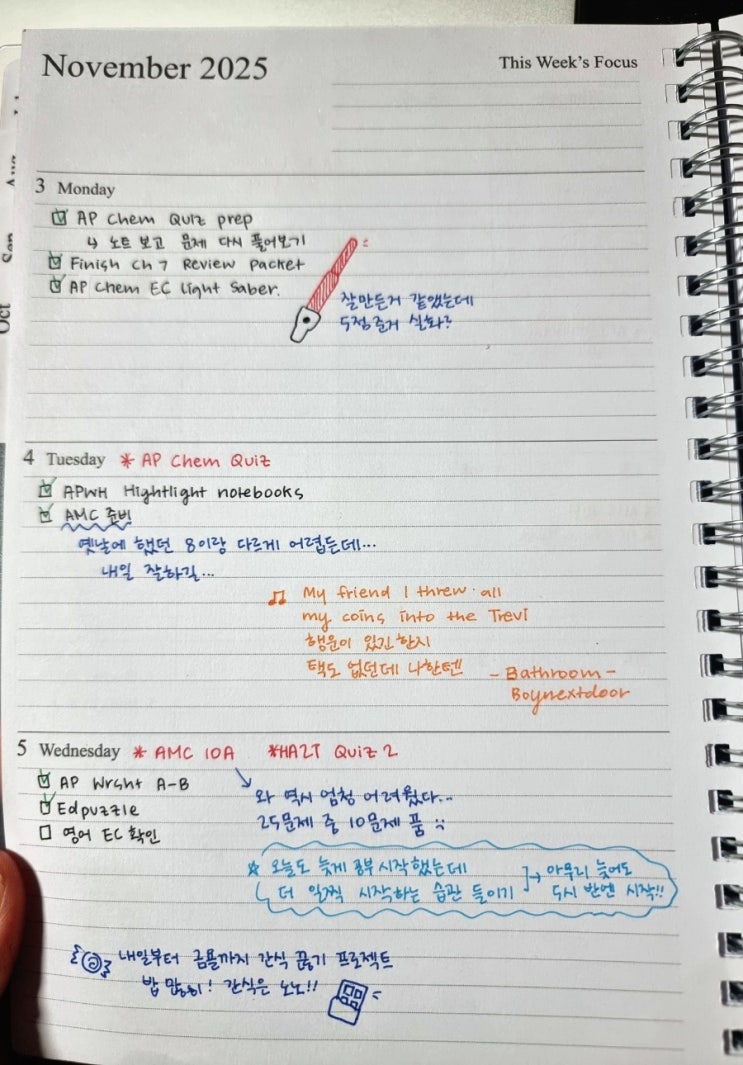 November 2025
This Week's Focus
3 Monday
AP Chem Quiz prep
↳ 노트 보고 문제 다시 풀어보기
Finish Ch 7 Review Packet
AP Chem EC Light Saber.
잘만든거 같았는데
두점준거 실화?
4 Tuesday * AP Chem Quiz
APWH Hightlight notebooks
AMC 준비
옛날에 했던 8이랑 다르게 어렵든데...
내일 잘하길...
♫ My friend I threw all
my coins into the Trevi
행운이 있긴 한지
택도 없던데 나한텐!!
- Bathroom -
Boynextdoor
5 Wednesday * AMC 10A *HA2T Quiz 2
AP Wrsht A-B
Edpuzzle
영어 EC 확인
와 역시 엄청 어려웠다...
25문제 중 10문제 품 ;;
☆ 오늘도 늦게 공부 시작했는데
더 일찍 시작하는 습관 들이기
→ 아무리 늦어도
5시 반엔 시작!!
내일부터 금욜까지 간식 끊기 프로젝트
밥 많히! 간식은 노노!!